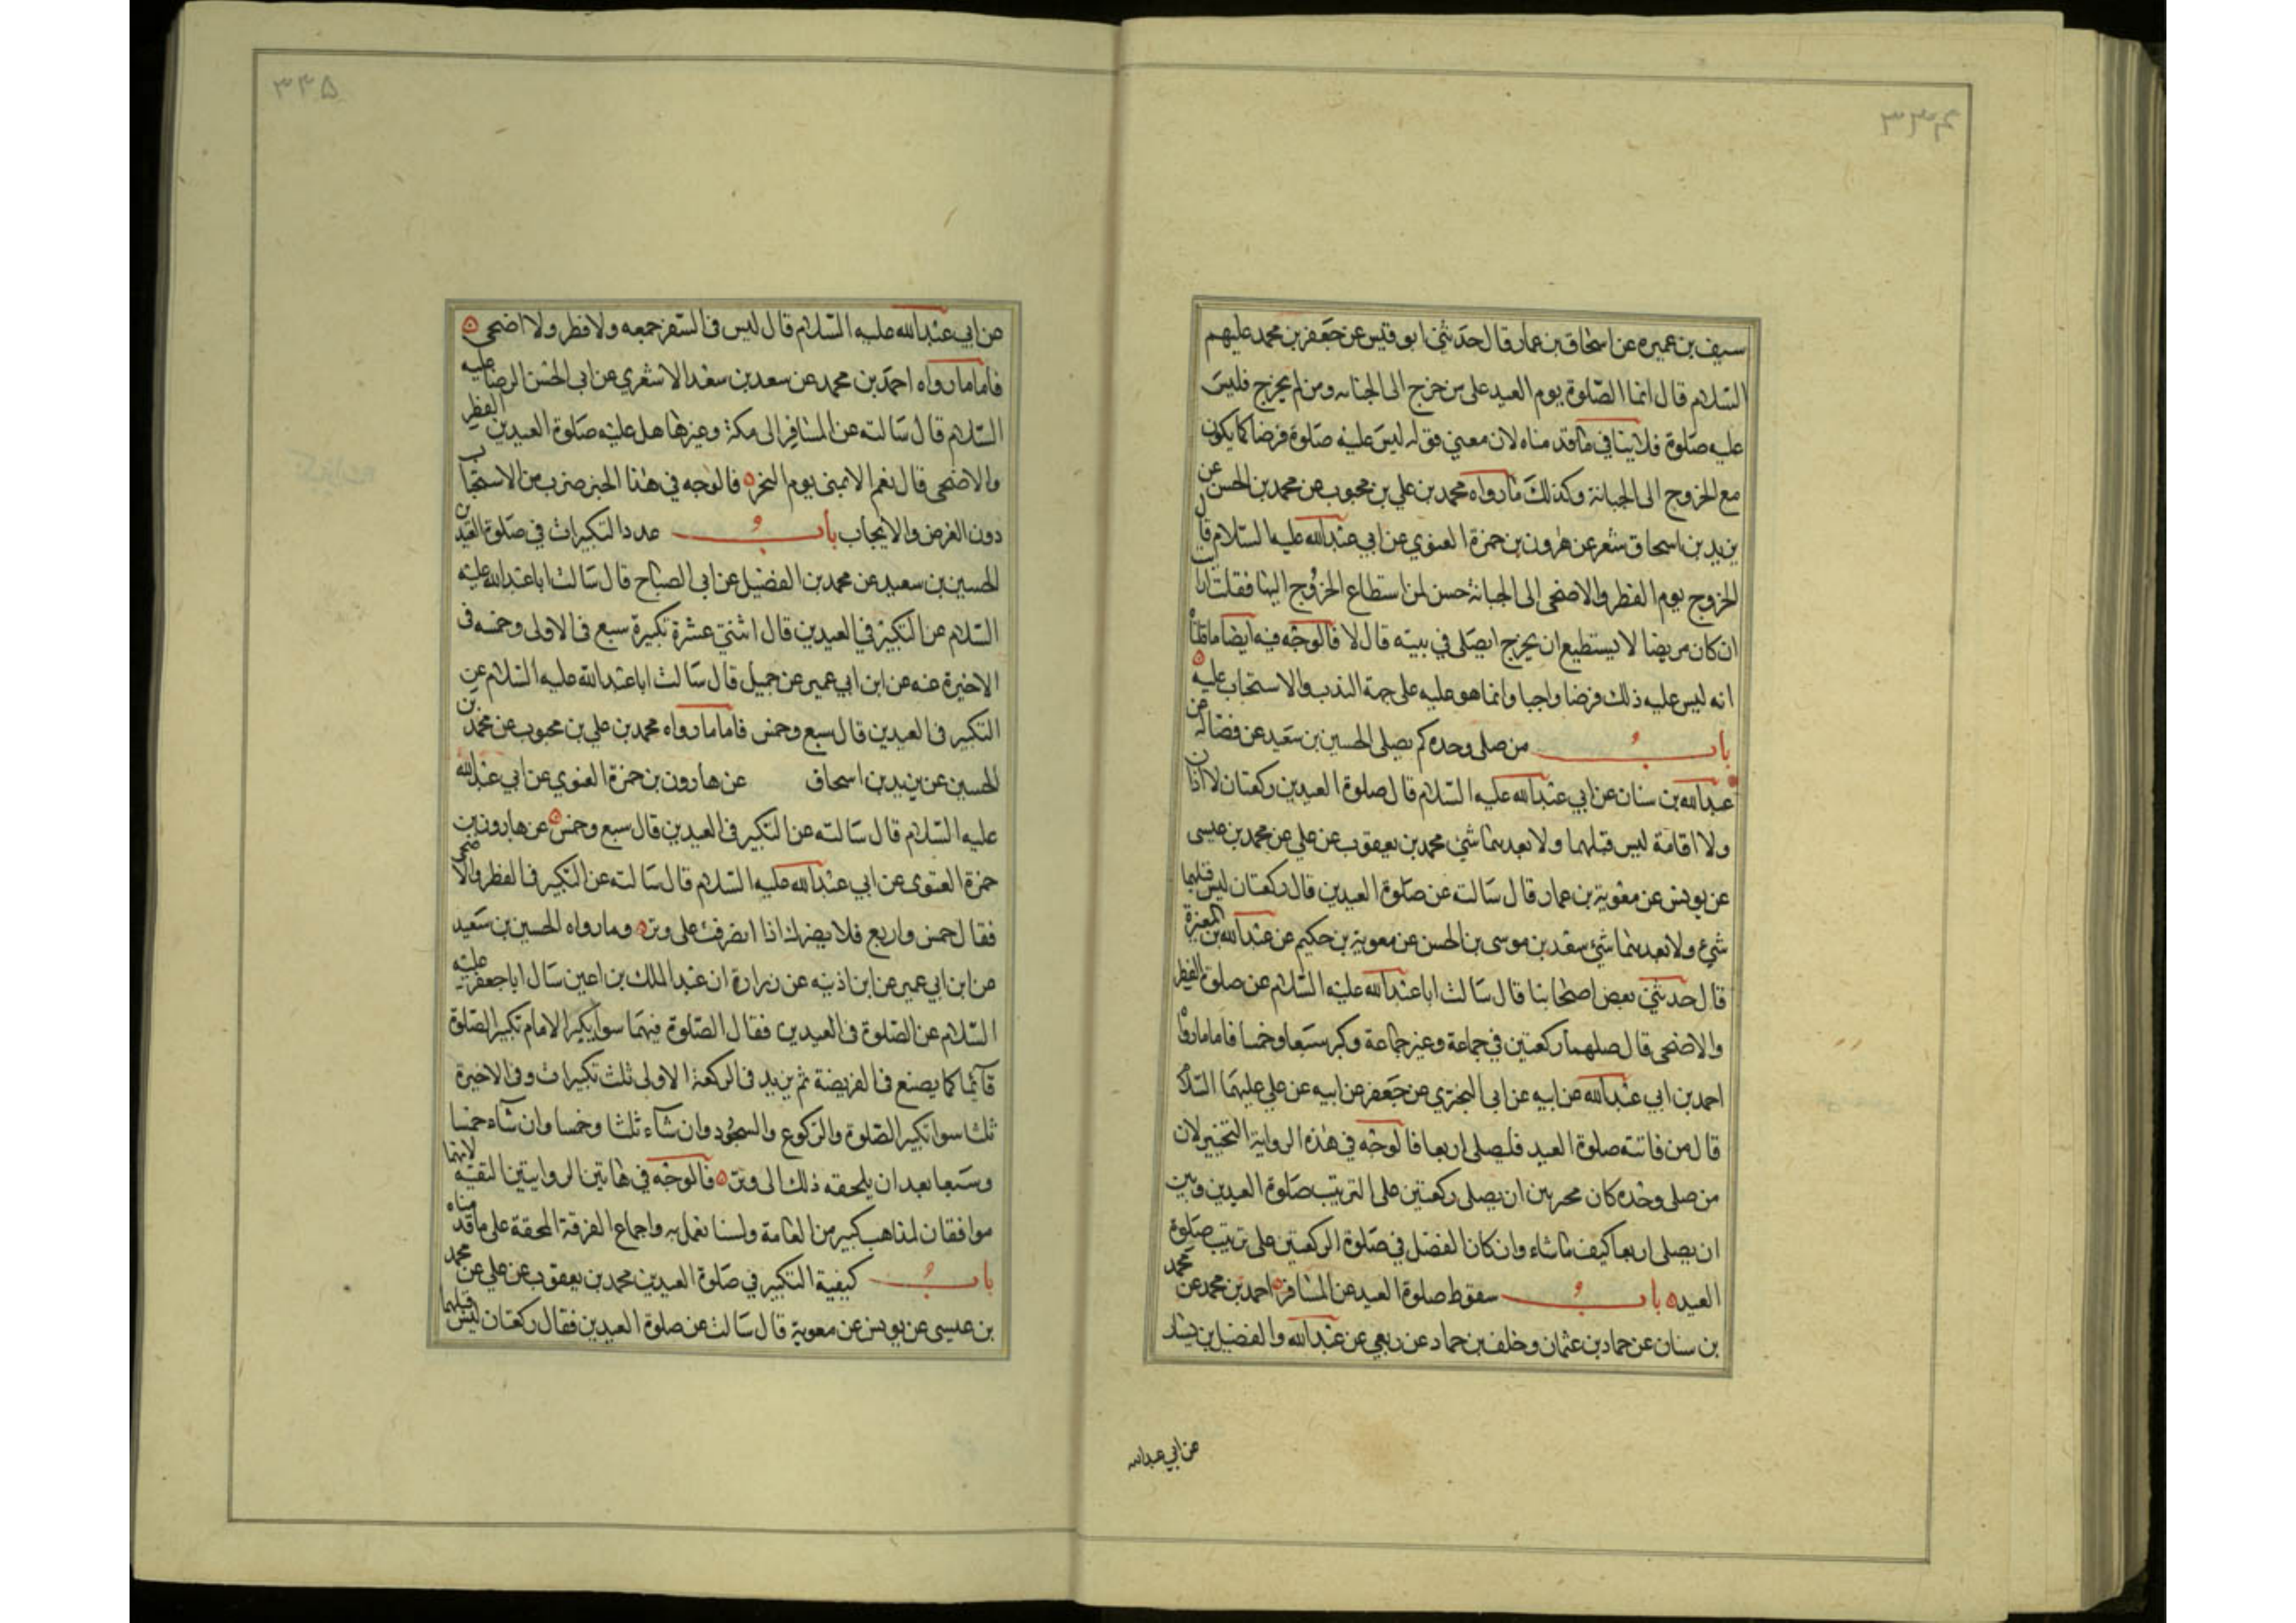 ٣٤٤
سيف بن عميره عن اسحاق بن عمار قال حدثني ابو قيس عن جعفر بن محمد عليهم
السلام قال انما الصلوة يوم العيد على من خرج الى الجبانه ومن لم يخرج فليس
عليه صلوة فلا ينافي ما قدمناه لان معني قوله ليس عليه صلوة فرضا كما يكون
مع الخروج الى الجبانة وكذلك ما رواه محمد بن علي بن محبوب عن محمد بن الحسن عن
يزيد بن اسحاق شعر عن هرون بن حمزة الغنوي عن ابي عبدالله عليه السلام قال
الخروج يوم الفطر والاضحى الى الجبانة حسن لمن استطاع الخروج اليها فقلت ارايت
ان كان مريضا لا يستطيع ان يخرج ايصلى في بيته قال لا فالوجه فيه ايضا ما قلناه
انه ليس عليه ذلك فرضا واجبا وانما هو عليه على جهة الندب والاستحباب عليه
باب من صلى وحده كم يصلى الحسين بن سعيد عن فضالة عن
عبدالله بن سنان عن ابي عبدالله عليه السلام قال صلوة العيدين ركعتان لا اذان
ولا اقامة ليس قبلهما ولا بعدهما شئ محمد بن يعقوب عن علي عن محمد بن عيسى
عن يونس عن معوية بن عمار قال سالته عن صلوة العيدين قال ركعتان ليس قبلهما
شئ ولا بعدهما شئ سعد بن موسى بن الحسن عن معوية بن حكيم عن عبدالله بن المغيرة
قال حدثني بعض اصحابنا قال سالت ابا عبدالله عليه السلام عن صلوة الفطر
والاضحى قال صلهما ركعتين في جماعة وغير جماعة وكبر سبعا وخمسا فاما ما رواه
احمد بن ابي عبدالله عن ابيه عن ابي البختري عن جعفر عن ابيه عن علي عليهما السلام
قال من فاتته صلوة العيد فليصلى اربعا فالوجه في هذه الرواية التخيير لان
من صلى وحده كان مخير بين ان يصلى ركعتين على الترتيب صلوة العيدين وبين
ان يصلى اربعا كيف ما شاء وان كان الفضل في صلوة الركعتين على ترتيب صلوة
العيد باب سقوط صلوة العيد عن المسافر احمد بن محمد عن محمد
بن سنان عن حماد بن عثمان وخلف بن حماد عن ربعي عن عبدالله والفضيل بن يسار
عن ابي عبدالله
٣٤٥
عن ابي عبدالله عليه السلام قال ليس في السفر جمعه ولا فطر ولا اضحى
فاما ما رواه احمد بن محمد عن سعد بن سعد الاشعري عن ابي الحسن الرضا عليه
السلام قال سالته عن المسافر الى مكة وغيرها هل عليه صلوة العيدين الفطر
والاضحى قال نعم الا بمنى يوم النحر فالوجه في هذا الخبر ضرب من الاستحباب
دون الفرض والايجاب باب عدد التكبيرات في صلوة العيدين
الحسين بن سعيد عن محمد بن الفضيل عن ابي الصباح قال سالت ابا عبدالله عليه
السلام عن التكبير في العيدين قال اثنتي عشرة تكبيرة سبع في الاولى وخمسه في
الاخيرة عنه عن ابن ابي عمير عن جميل قال سالت ابا عبدالله عليه السلام عن
التكبير في العيدين قال سبع وخمس فاما ما رواه محمد بن علي بن محبوب عن محمد بن
الحسين عن يزيد بن اسحاق عن هارون بن حمزة الغنوي عن ابي عبدالله
عليه السلام قال سالته عن التكبير في العيدين قال سبع وخمس عن هارون بن
حمزة الغنوى عن ابي عبدالله عليه السلام قال سالته عن التكبير في الفطر والاضحى
فقال خمس واربع فلا يضرك اذا انصرفت على وتر وما رواه الحسين بن سعيد
عن ابن ابي عمير عن ابن اذينه عن زرارة ان عبد الملك بن اعين سال ابا جعفر عليه
السلام عن الصلوة في العيدين فقال الصلوة فيهما سوا يكبر الامام تكبير الصلوة
قائما كما يصنع في الفريضة ثم يزيد في الركعة الاولى ثلث تكبيرات وفي الاخيرة
ثلثا سوا تكبير الصلوة والركوع والسجود وان شاء ثلثا وخمسا وان شاء خمسا
وسبعا بعد ان يلحقه ذلك الى وتر فالوجه في هاتين الروايتين التقية لانهما
موافقان لمذاهب كبير من العامة ولسنا نعمل به واجماع الفرقة المحقة على ما قدمناه
باب كيفية التكبير في صلوة العيدين محمد بن يعقوب عن علي عن محمد
بن عيسى عن يونس عن معوية قال سالت عن صلوة العيدين فقال ركعتان ليس قبلهما